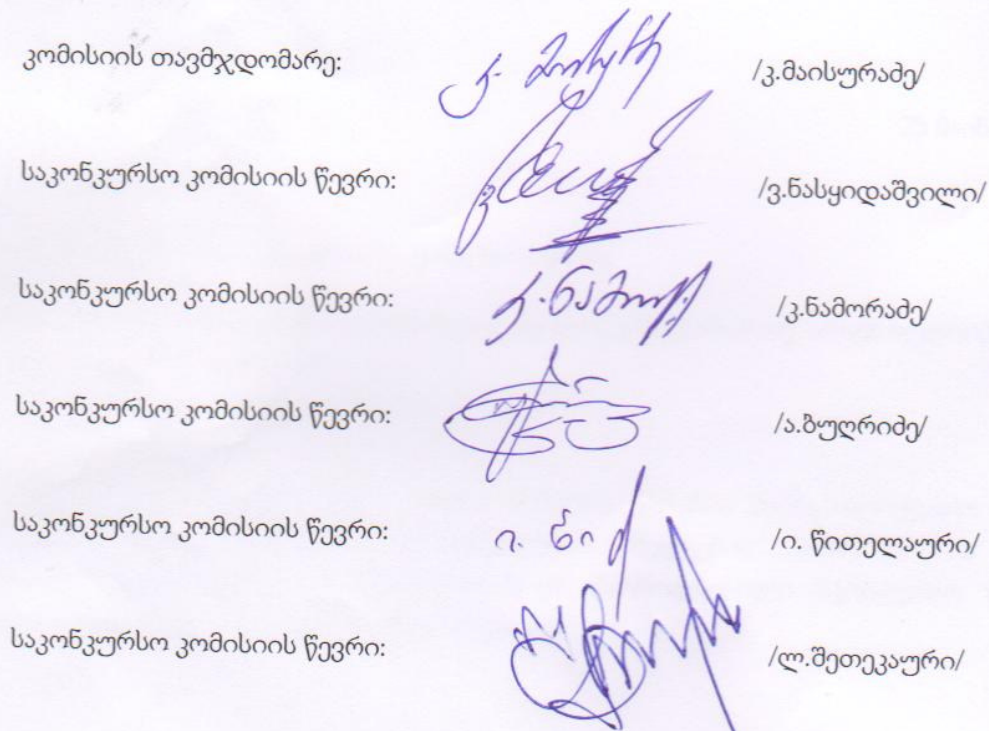 კომისიის თავმჯდომარე: /კ.მაისურაძე/
საკონკურსო კომისიის წევრი: /ვ.ნასყიდაშვილი/
საკონკურსო კომისიის წევრი: /კ.ნამორაძე/
საკონკურსო კომისიის წევრი: /ა.ზუღრიძე/
საკონკურსო კომისიის წევრი: /ი. წითელაური/
საკონკურსო კომისიის წევრი: /ლ.შეთეკაური/